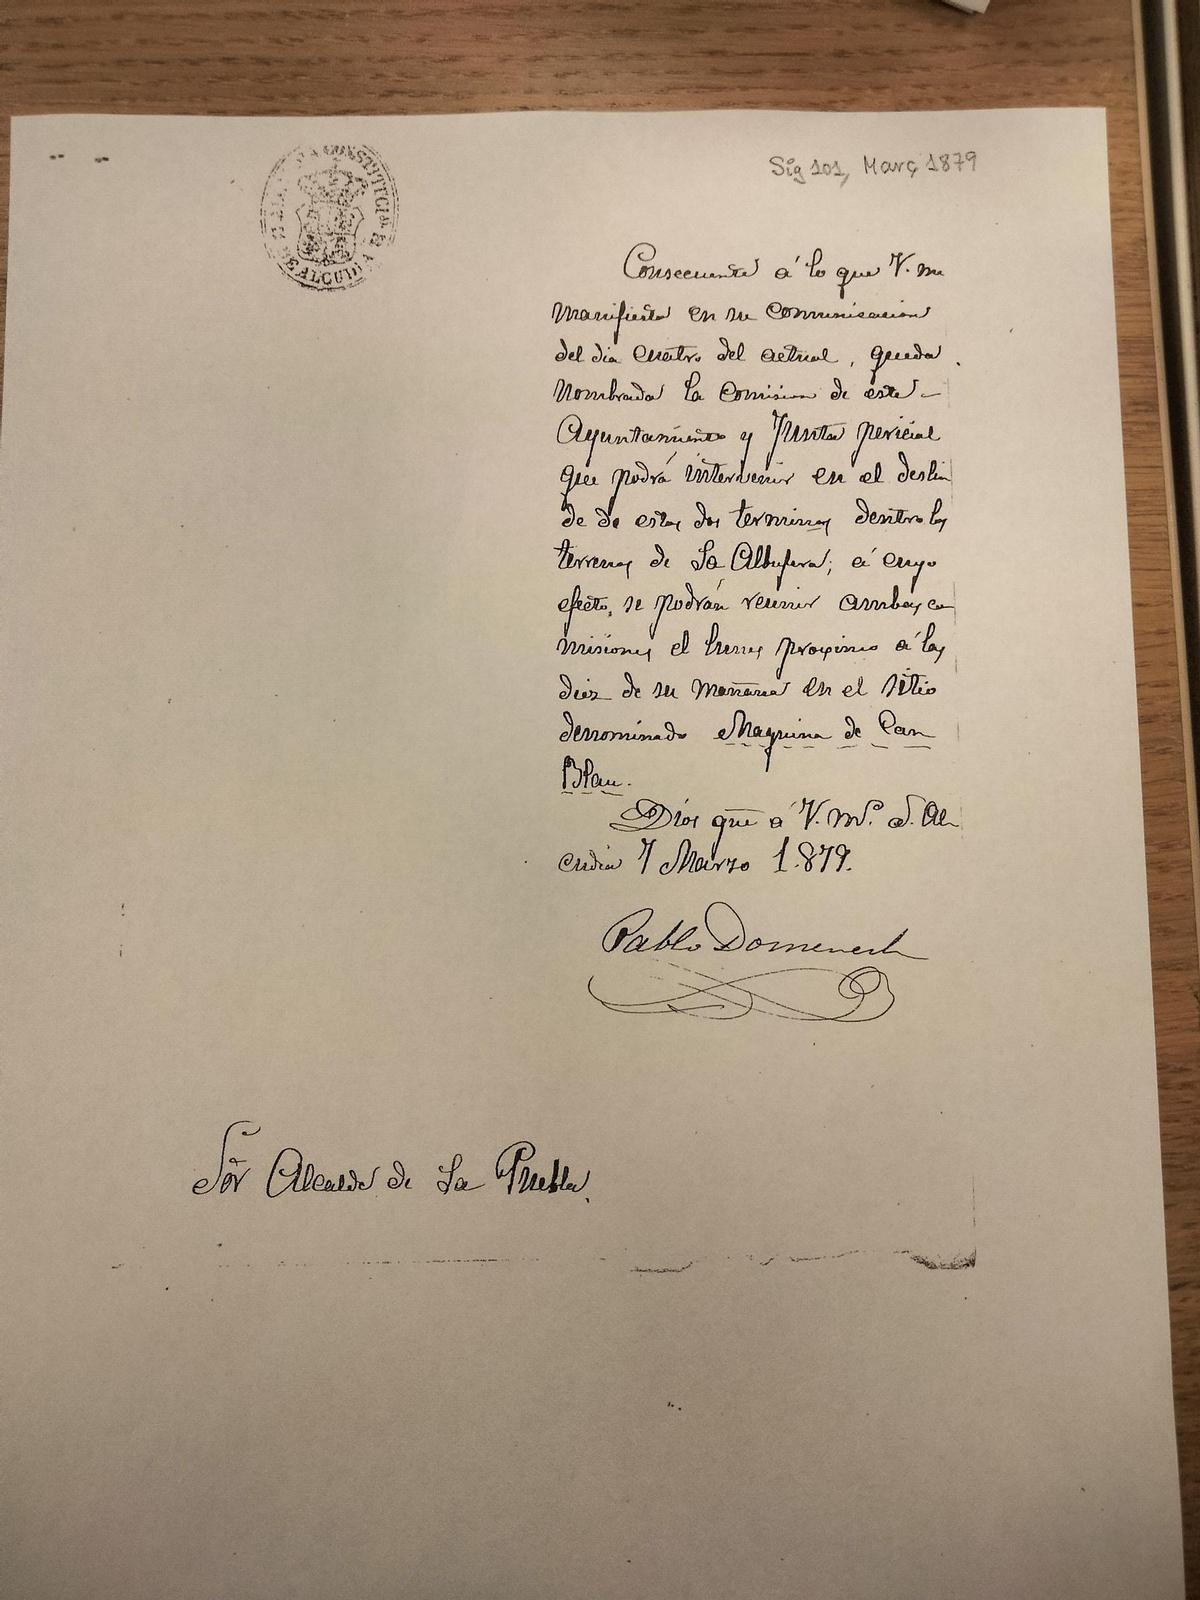 ALCALDIA CONSTITUCIONAL
DE ALCUDIA
Sig 101, Març 1879
Consecuente á lo que V. me
manifiesta en su comunicacion
del dia cuatro del actual, queda
nombrada la comision de este
Ayuntamiento y Junta pericial
que podrá intervenir en el deslin
de de estos dos terminos dentro los
terrenos de La Albufera; á cuyo
efecto, se podrán reunir ambas co
misiones el lunes proximo á las
diez de su mañana en el sitio
denominado Maquina de Can
Blau.
Dios gue á V. ms. as. Al
cudia 7 Marzo 1.879.
Pablo Domenech
Sor Alcalde de La Puebla.